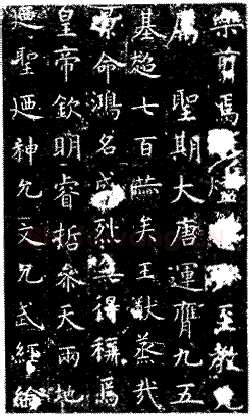 樂前焉煨燼至教允
屬聖期大唐運膺九五
基超七百赫矣王猷蒸哉
景命鴻名盛烈無得稱焉
皇帝欽明睿哲參天兩地
迺聖迺神允文允武經綸